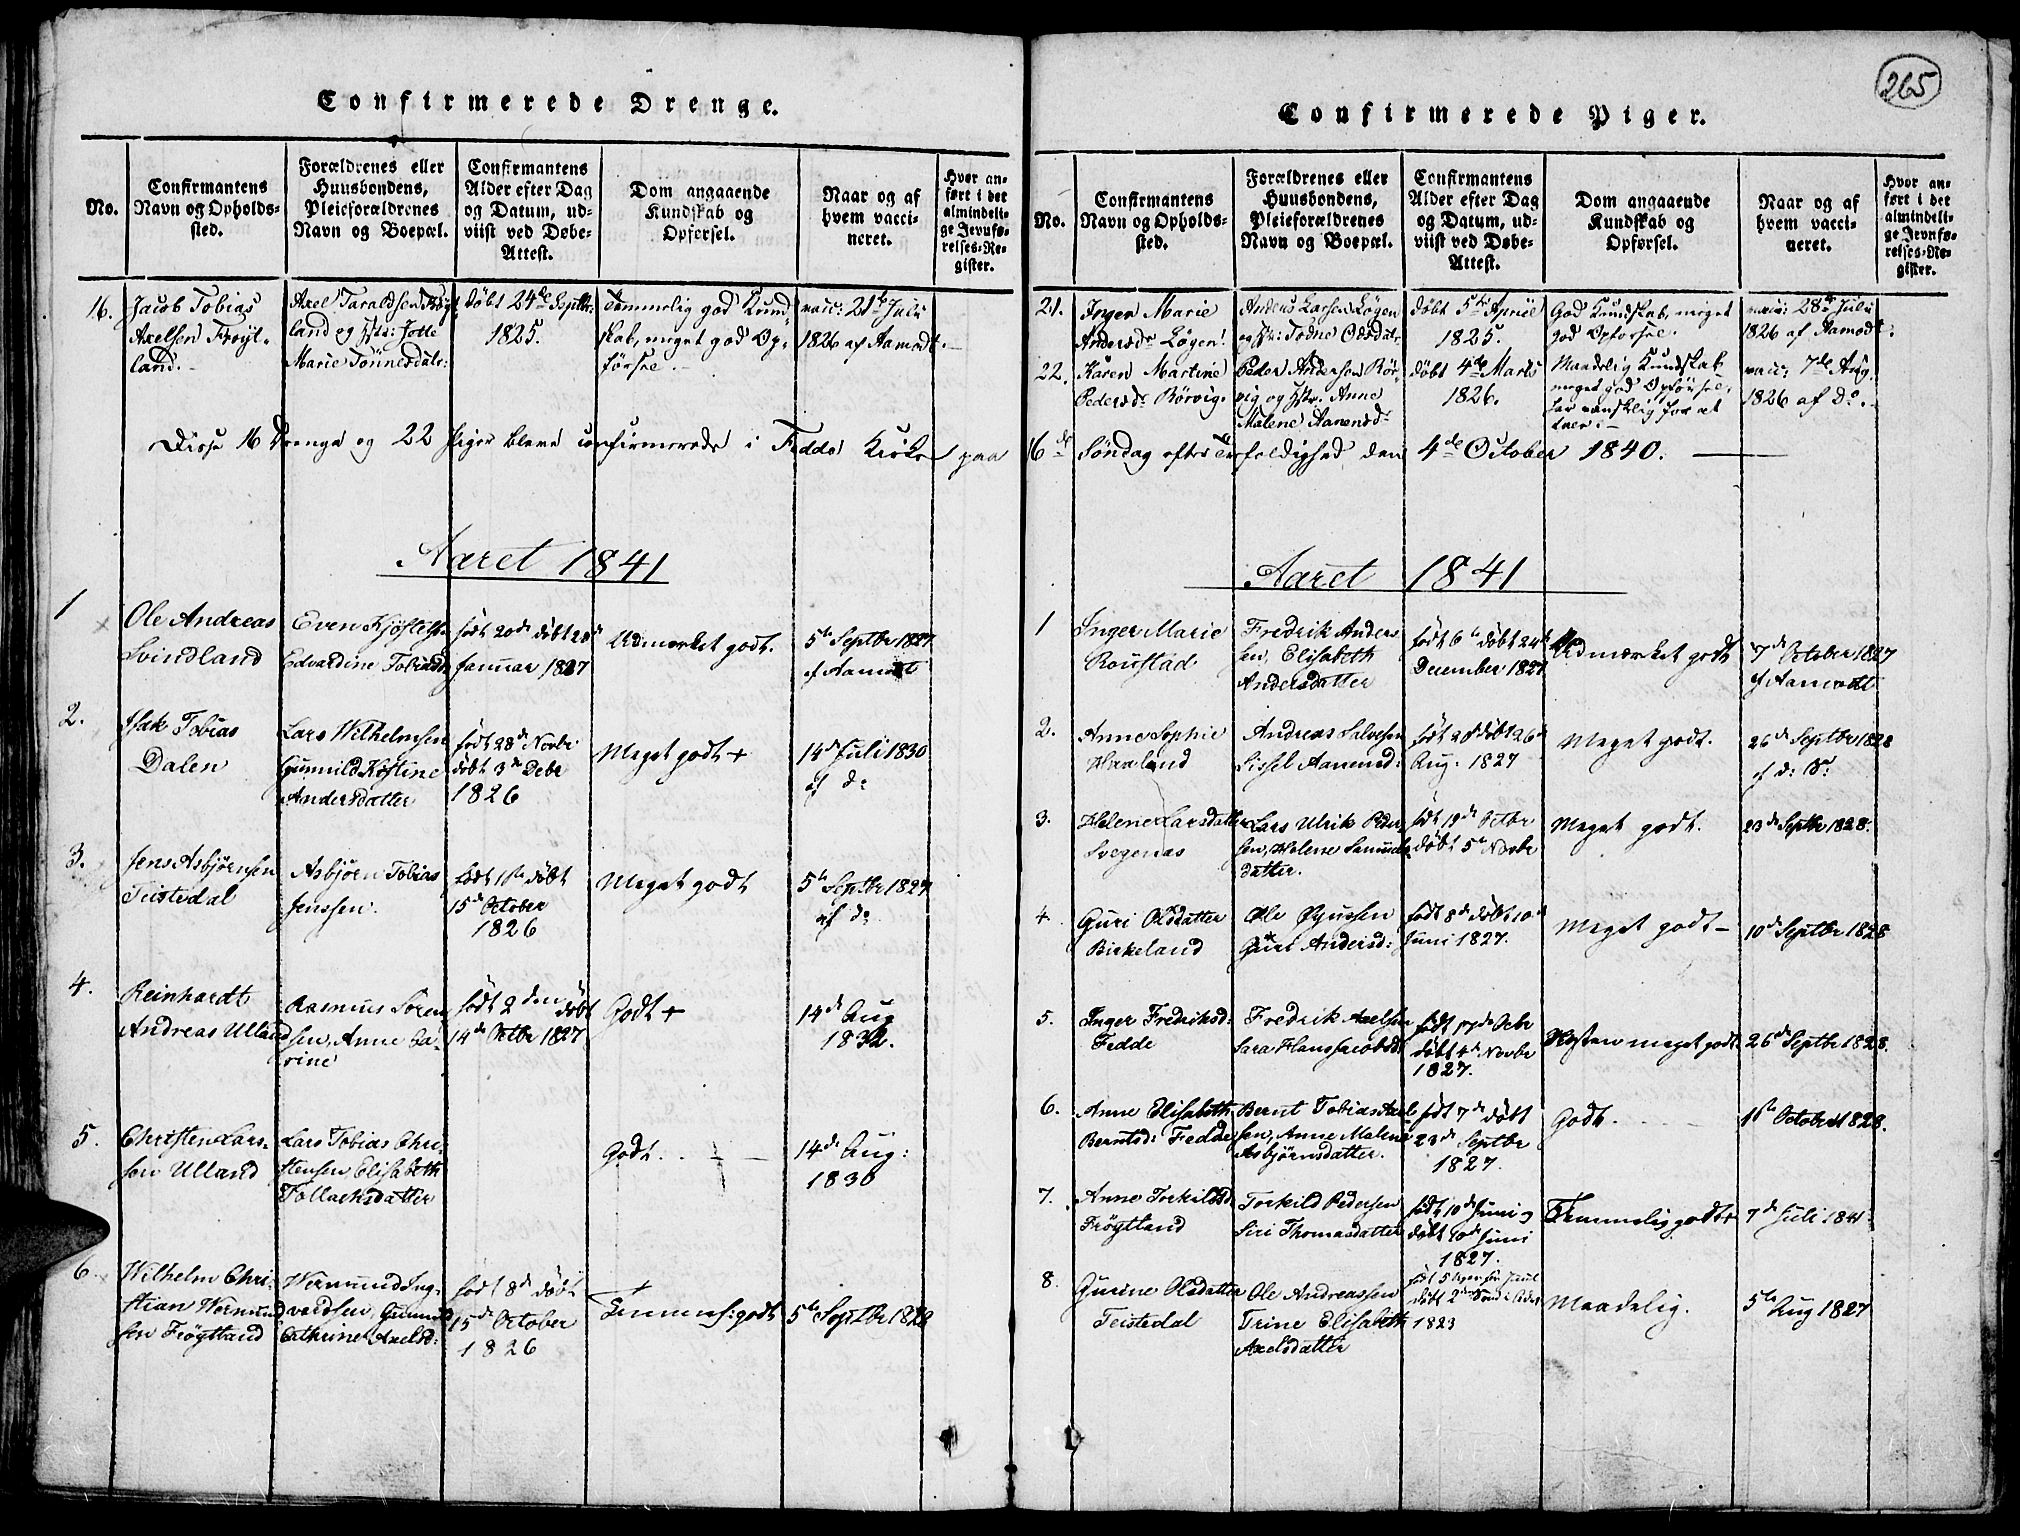 Confirmerede Drenge.
No.
Confirmantens
Navn og Opholds-
sted.
Forældrenes eller
Huusbondens,
Pleieforældrenes
Navn og Boepæl.
Confirmantens
Alder efter Dag
og Datum, ud-
viist ved Døbe-
Attest.
Dom angaaende
Kundskab og
Opførsel.
Naar og af
hvem vacci-
neret.
Hvor an-
ført i det
almindeli-
ge Jevnfø-
relses-Re-
gister.
16.
Jacob Tobias
Axelsen Frøyt-
land.
Axel Taraldsen Frøyt-
land og Hstr: Jotte
Marie Tönnesdatr:
döbt 24de Septbr:
1825.
Temmelig god Kund-
skab, meget god Op-
försel.
vacc: 21de Juli
1826 af Aamodt.
Disse 16 Drenge og 22 Piger bleve confirmerede i Fedde Kirke paa
Aaret 1841
1
Ole Andreas
Svindland
Even Kjöstels.
Edvardine Tobiasd.
födt 20de döbt 28d
Januar 1827
Udmærket godt.
5te Septbr 1827
af Aamodt
2.
Isak Tobias
Dalen
Lars Wilhelmsen
Gunnild Kistine
Andersdatter
födt 28de Novbr
döbt 3de Debr
1826
Meget godt +
14de Juli 1830
af d:
3.
Jens Asbjørnsen
Teistedal
Asbjörn Tobias
Jenssen.
födt 1ste döbt
15de October
1826
Meget godt
5te Septbr 1827
af d:
4.
Reinhardt
Andreas Ulland
Rasmus Sören
sen, Anne Ca-
rine
födt 2den döbt
14de Octbr 1827
Godt +
14de Aug
1832.
5.
Christen Lars-
sen Ulland
Lars Tobias Chri-
stensen, Elisabeth
Tollachsdatter
Godt.
14de Aug:
1830
6.
Wilhelm Chri-
stian Wermund
sen Frögtland
Wermund Ing-
vardsen, Gunnild
Cathrine Axelsd:
födt 8de döbt
15de October
1826
Temmel: godt
5te Septbr 1828
265
Confirmerede Piger.
No.
Confirmantens
Navn og Opholds-
sted.
Forældrenes eller
Huusbondens,
Pleieforældrenes
Navn og Boepæl.
Confirmantens
Alder efter Dag
og Datum, ud-
viist ved Døbe-
Attest.
Dom angaaende
Kundskab og
Opførsel.
Naar og af
hvem vacci-
neret.
Hvor an-
ført i det
almindeli-
ge Jevnfø-
relses-Re-
gister.
21.
Inger Marie
Andersdr Løgen.
Anders Larsen Løgen
og Hstr: Todne Olsdatr.
döbt 5te April
1825.
God Kundskab, meget
god Opförsel.
vacc: 28de Juli
1826 af Aamodt.
22.
Karen Martine
Pedersdr Rörvig.
Peder Andersen Rör-
vig og Hstr: Anne
Malene Aanensdr
döbt 4de Marts
1826.
Maadelig Kundskab
meget god Opförsel,
har vanskelig for at
lære.
vacc: 7de Aug.
1826 af Do.
16de Søndag efter Trefoldighed den 4de October 1840.
Aaret 1841
1
Inger Marie
Roustad
Fredrik Anders
sen, Elisabeth
Andersdatter
födt 6te döbt 24de
December 1827
Udmærket godt
7de October 1827
af Aamodt
2.
Anne Sophie
Haaland
Andreas Salvesen
Sissel Aanensd:
födt 20de döbt 26de
Aug. 1827
Meget godt.
26de Septbr 1828
af d:
3.
Helene Larsdatter
Svegenas
Lars Ulrik Peder
sen, Helene Samuels
datter.
födt 19de Octbr
döbt 5te Novbr
Meget godt.
23de Septbr 1828.
4.
Guri Olsdatter
Birkeland
Ole
Guri Andersd:
födt 8de döbt 10de
Juni 1827.
Meget godt
10de Septbr 1828
5.
Inger Fredriksd:
Fedde
Fredrik Axelsen
Sara Hans Jacobsd:
födt 17de Octbr
döbt 4de Novbr
1827.
Næsten meget godt
26de Septbr 1828.
6.
Anne Elisabeth
Berntsd: Fedde
Bernt Tobias Axel
sen, Anne Malene
Asbjørnsdatter.
födt 7de döbt
23de Septbr
1827.
Godt.
1ste October 1828.
7.
Anne Torkildsd
Frögtland
Torkild Pedersen
Siri Thomasdatter
födt 10de Juni
döbt 10de Juni
1827.
Temmelig godt
7de Juli 1841
8.
Gurine Olsdatter
Teistedal
Ole Andreassen
Trine Elisabeth
Axelsdatter
födt 5 Uger för Juul
döbt 2den Sönd i Advt
1823
Maadelig.
5te Aug 1827